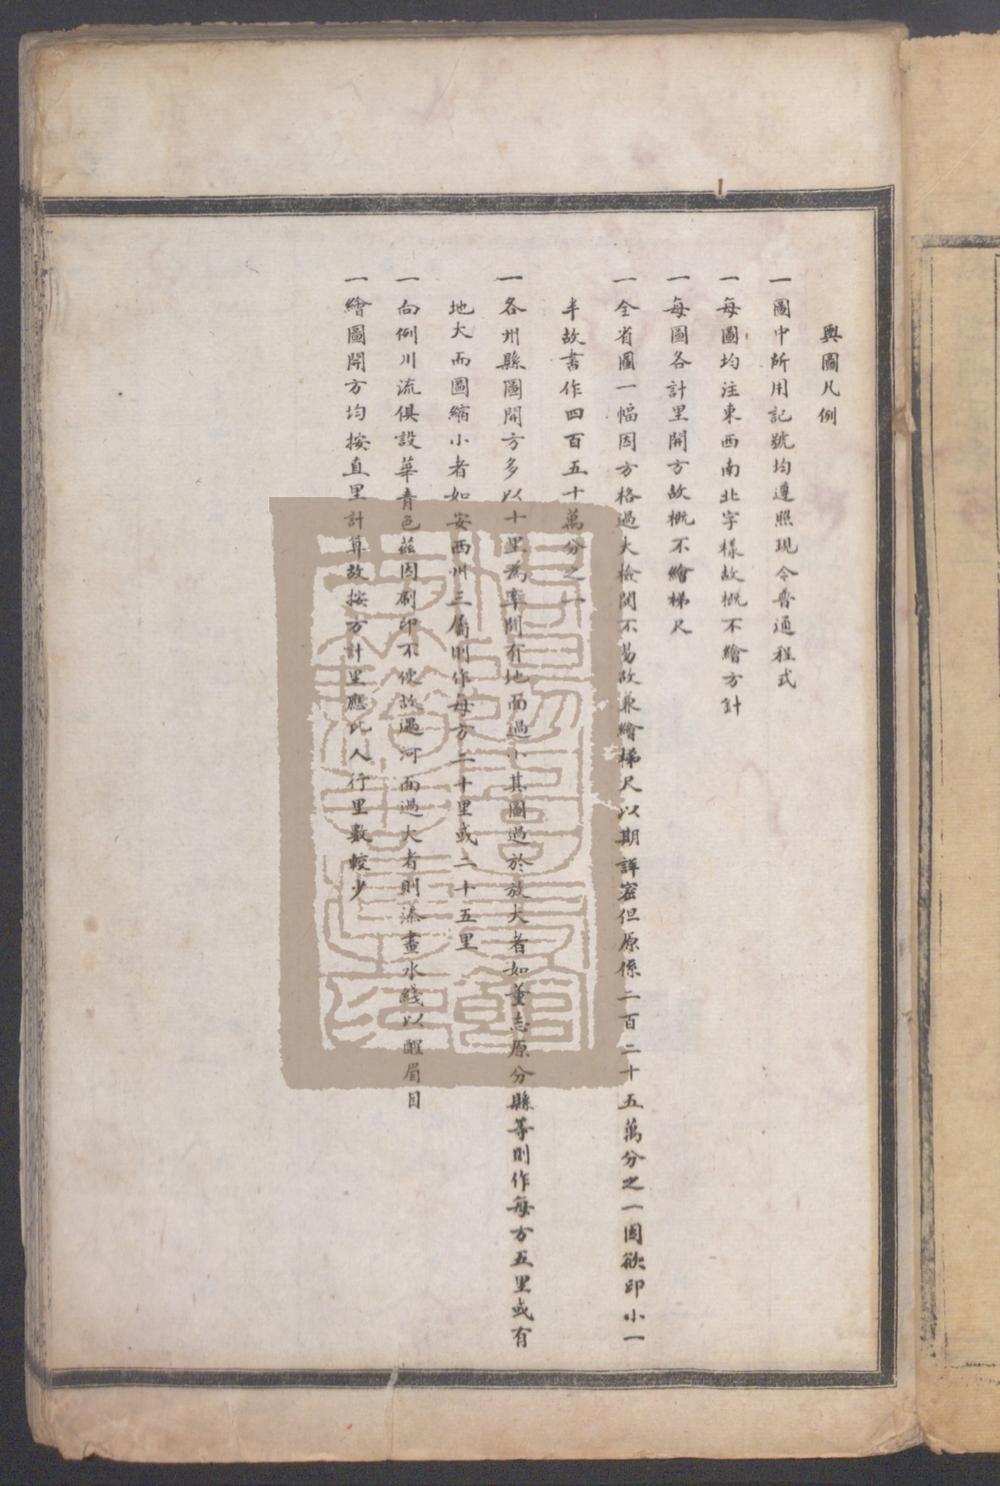 輿圖凡例
一圖中所用記號均遵照現今普通程式
一每圖均注東西南北字樣故概不繪方針
一每圖各計里開方故概不繪梯尺
一全省圖一幅因方格過大檢閱不易故兼繪梯尺以期詳密但原係二百二十五萬分之一因欲印小一
半故書作四百五十萬分之一
一各州縣圖開方多以十里為率間有地面過小其圖過於放大者如董志原分縣等則作每方五里或有
地大而圖縮小者如安西州三屬則作每方二十里或二十五里
一向例川流俱設華青色茲因刷印不便故遇河面過大者則添畫水綫以醒眉目
一繪圖開方均按直里計算故按方計里應比人行里數較少